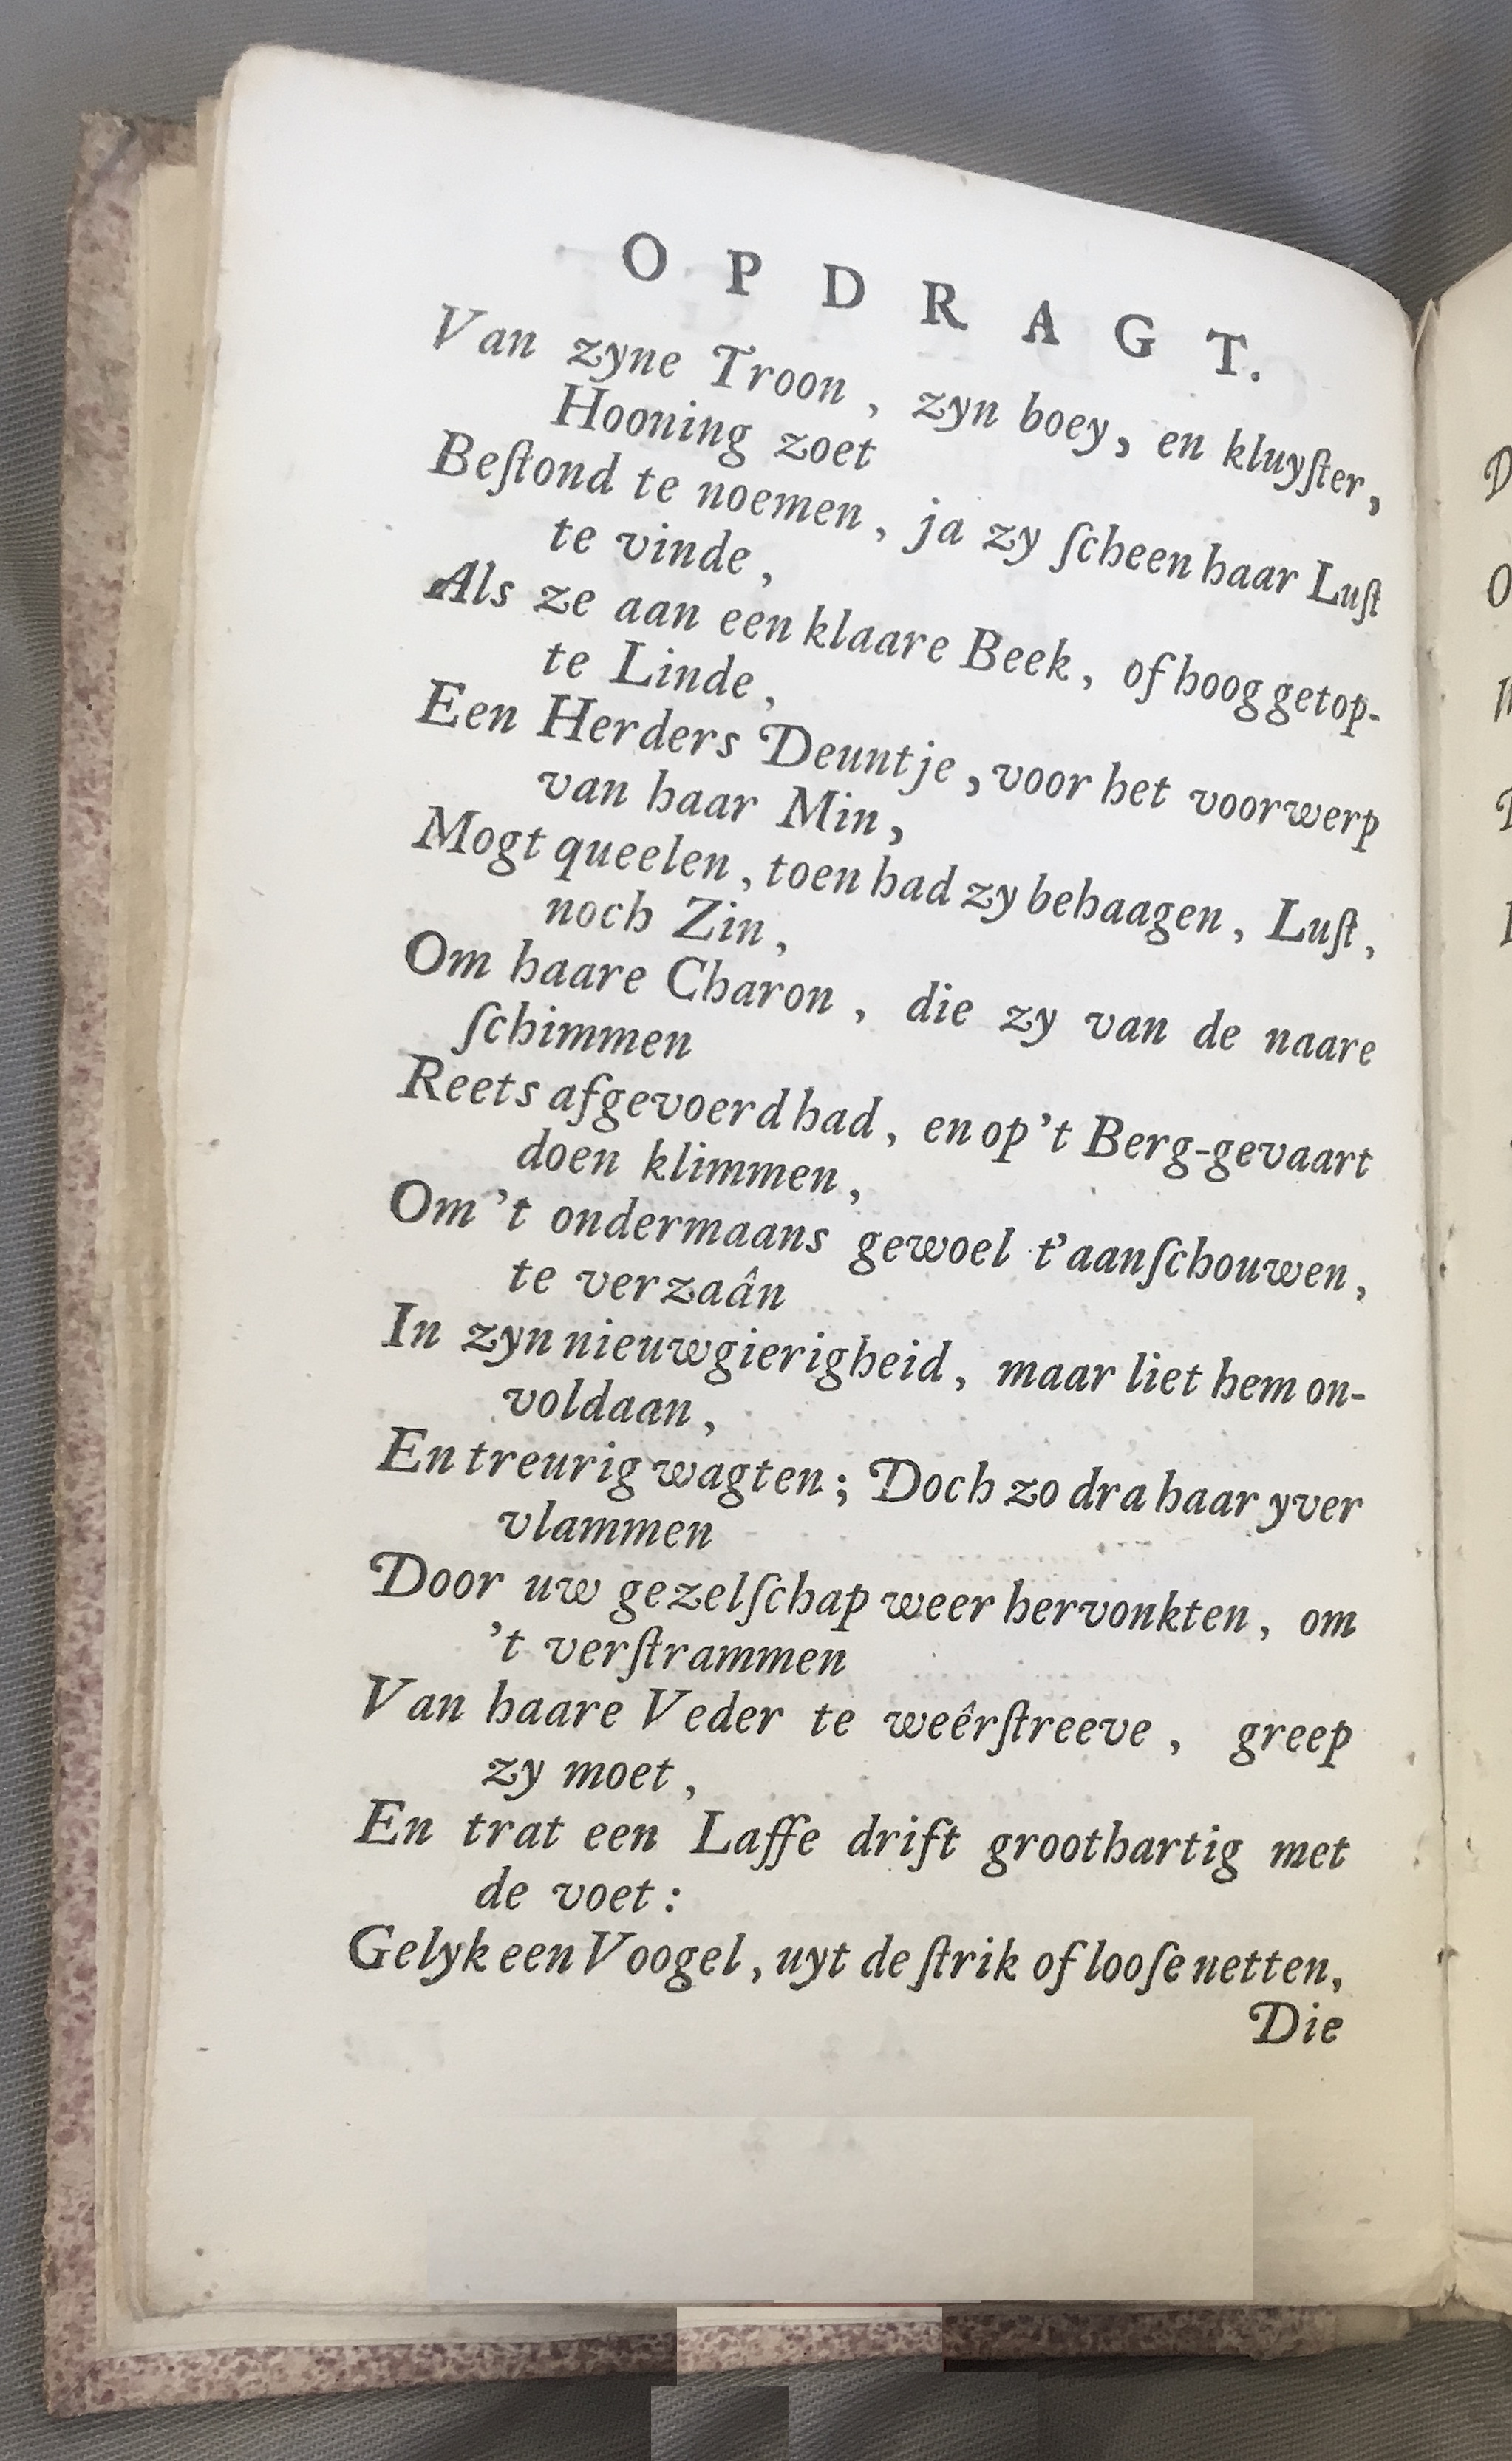 OPDRAGT.
Van zyne Troon, zyn boey, en kluyſter,
Hooning zoet
Beſtond te noemen, ja zy ſcheen haar Luſt
te vinde,
Als ze aan een klaare Beek, of hoog getop-
te Linde,
Een Herders Deuntje, voor het voorwerp
van haar Min,
Mogt queelen, toen had zy behaagen, Luſt,
noch Zin,
Om haare Charon, die zy van de naare
ſchimmen
Reets afgevoerd had, en op 't Berg-gevaart
doen klimmen,
Om 't ondermaans gewoel t'aanſchouwen,
te verzaân
In zyn nieuwgierigheid, maar liet hem on-
voldaan,
En treurig wagten; Doch zo dra haar yver
vlammen
Door uw gezelſchap weer hervonkten, om
't verſtrammen
Van haare Veder te weêrſtreeve, greep
zy moet,
En trat een Laffe drift groothartig met
de voet:
Gelyk een Voogel, uyt de ſtrik of looſe netten,
Die